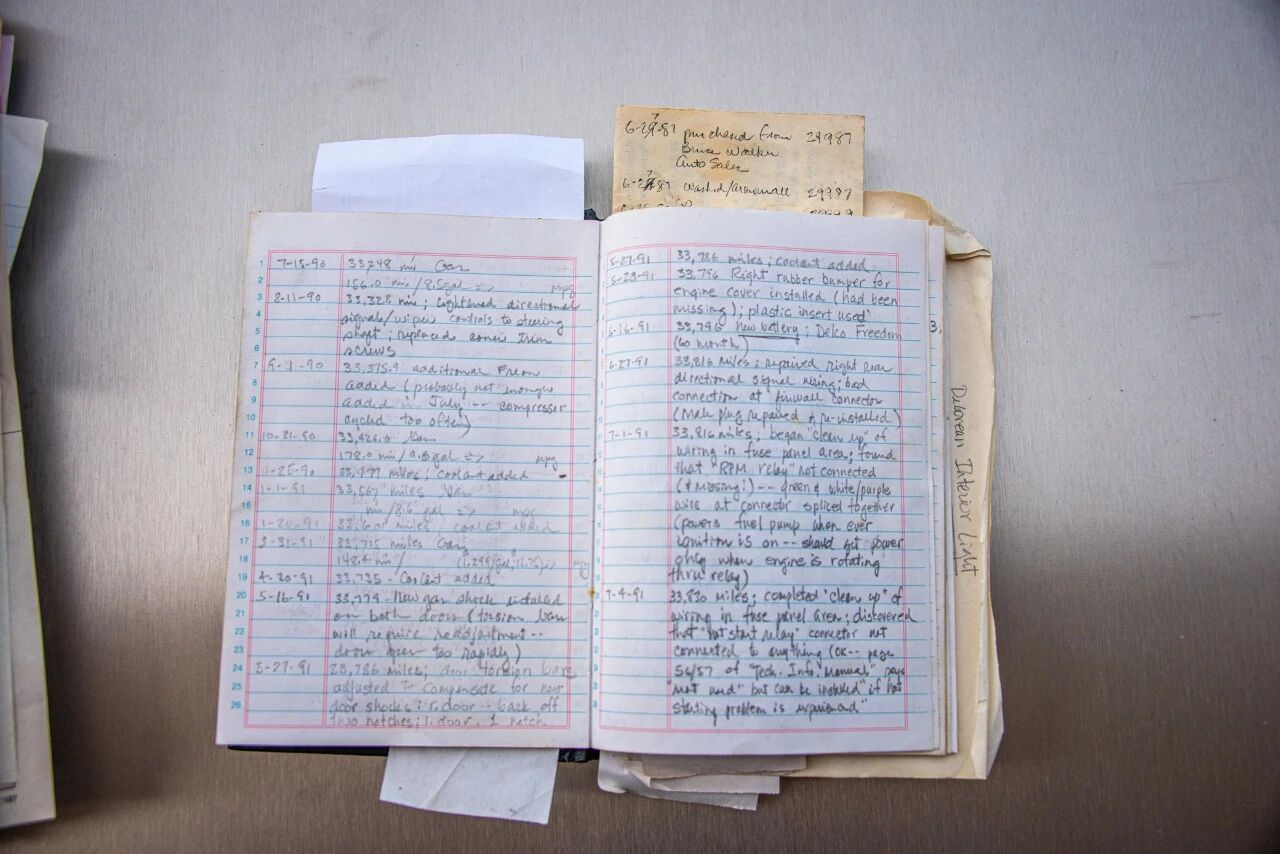 6-27-87 purchased from 29987
Bruce Walker
Auto Sales
6-27-87 washed/armorall 29987
1 7-15-90 33,248 mi Gas
2 156.0 mi/8.5gal => mpg
3 8-11-90 33,328 mi; tightened directional
4 signals/wiper controls to steering
5 shaft; replaced some trim
6 screws
7 9-1-90 33,375.9 additional Freon
8 added (probably not enough
9 added in July -- compressor
10 cycled too often)
11 10-21-90 33,426.0 Gas
12 178.0 mi/9.8gal => mpg
13 11-25-90 33,477 miles; coolant added
14 1-1-91 33,567 miles Gas
15 mi/8.6 gal => mpg
16 1-20-91 33,601 miles coolant added
17 3-31-91 33,715 miles Gas
18 148.6 mi/
19 4-20-91 33,735 - Coolant added
20 5-16-91 33,774 - New gas shocks installed
21 on both doors (torsion bars
22 will require readjustment --
23 doors open too rapidly)
24 5-27-91 33,786 miles; door torsion bars
25 adjusted to compensate for new
26 door shocks: r. door -- back off
two notches; l. door, 1 notch
5-27-91 33,786 miles; coolant added
5-28-91 33,796 Right rubber bumper for
engine cover installed (had been
missing); plastic insert used
6-16-91 33,796 new battery: Delco Freedom
(60 month)
6-27-91 33,816 miles; repaired right rear
directional signal wiring; bad
connection at firewall connector
(Male plug repaired & re-installed)
7-1-91 33,816 miles, began "clean up" of
wiring in fuse panel area; found
that "RPM relay" not connected
(& Missing!) -- green & white/purple
wire at connector spliced together
(powers fuel pump when ever
ignition is on -- should get power
only when engine is rotating
thru relay)
7-4-91 33,830 miles; completed "clean up" of
wiring in fuse panel area; discovered
that "hot start relay" connector not
connected to anything (OK -- page
56/57 of "Tech. Info. Manual" says
"not used" but can be installed "if hot
starting problem is experienced"
3,
Delorean Interior Light